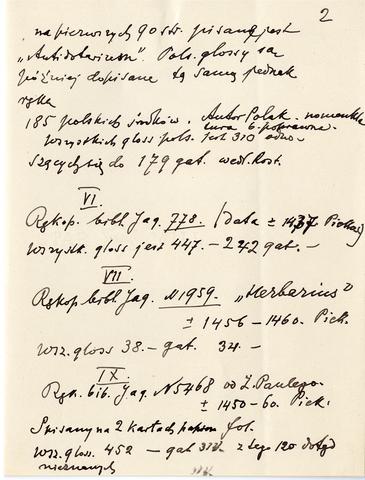 2
na pierwszych 90 str. pisany jest
„Antidotarium". Pols. glossy są
później dopisane tą samą jednak
ręką
185 polskich środków. Autor Polak. nomenkla
tura b. poprawna.
Wszystkich gloss pols. jest 310 odno-
szących się do 179 gat. wedł. Rost.
VI.
Rękop. bibl. Jag. 778. /data ± 1437
Wszystk. gloss jest 447. – 242 gat. –
VII.
Rękop bibl. Jag. N 1959. „Herbarius"
± 1456 – 1460.
Wsz. gloss 38. – gat. 34. –
IX.
Ręk. bib. Jag. N 5468 od Ż. Paulego.
± 1450 – 60.
Spisany na 2 kartach fol.
Wsz. gloss. 452 – gat z tego 120 dotąd
nieznanych